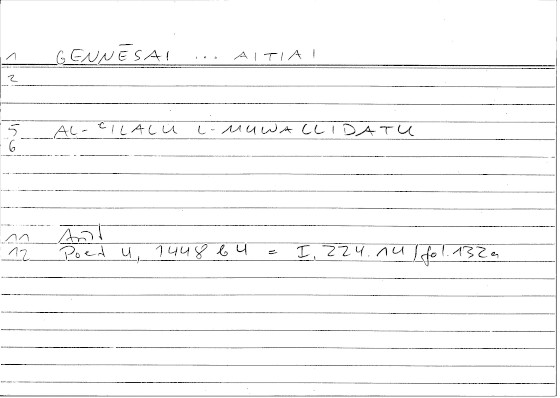 1 GENNĒSAI ... AITIAI
2
5 AL-ʿILALU L-MUWALLIDATU
6
11 Arist
12 Poet 4, 1448 b 4 = I, 224.14/fol.132a